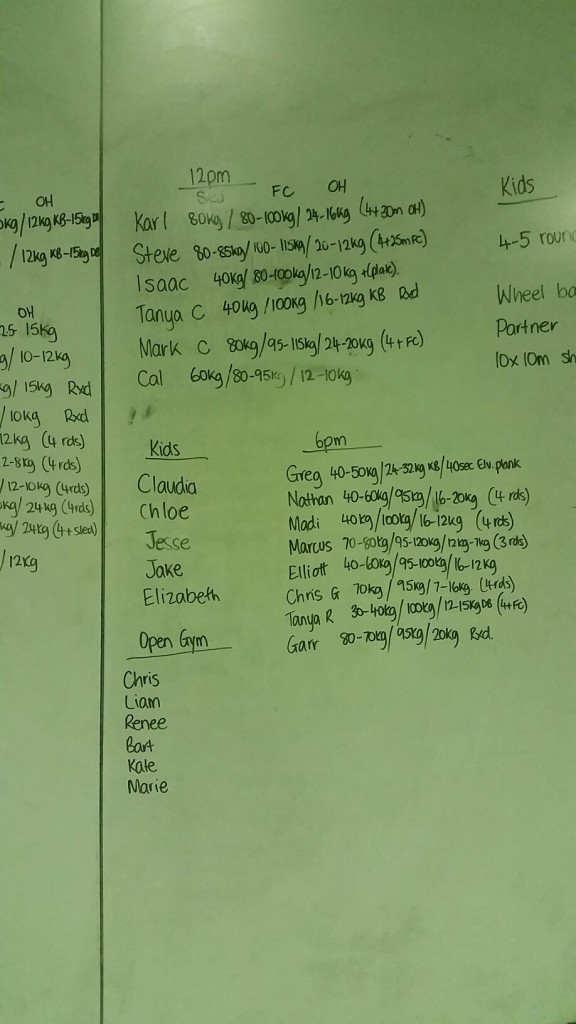 OH
/12kg KB-15kg DB
/12kg KB-15kg DB
OH
15kg
/ 10-12kg
/ 15kg Rxd
/10kg Rxd
12kg (4 rds)
2-8kg (4 rds)
/12-10kg (4rds)
/ 24kg (4rds)
/ 24kg (4+sled)
/12kg
12pm
FC OH
Karl 80kg / 80-100kg / 24-16kg (4+30m OH)
Steve 80-85kg/100-115kg/20-12kg (4+25m FC)
Isaac 40kg/80-100kg/12-10kg +(plate).
Tanya C 40kg /100kg /16-12kg KB Rxd
Mark C 80kg/95-115kg/24-20kg (4+FC)
Cal 60kg/80-95kg / 12-10kg
Kids
Claudia
Chloe
Jesse
Jake
Elizabeth
Open Gym
Chris
Liam
Renee
Bart
Kate
Marie
6pm
Greg 40-50kg/24-32kg KB/40sec Elv. plank
Nathan 40-60kg/95kg/16-20kg (4 rds)
Madi 40kg/100kg/16-12kg (4rds)
Marcus 70-80kg/95-120kg/12kg-7kg (3 rds)
Elliott 40-60kg/95-100kg/16-12kg
Chris G 70kg / 95kg/7-16kg. (4rds)
Tanya R 30-40kg/100kg/12-15kg DB (4+FC)
Garr 80-70kg/95kg/20kg Rxd.
Kids
4-5
Wheel
Partner
10x10m